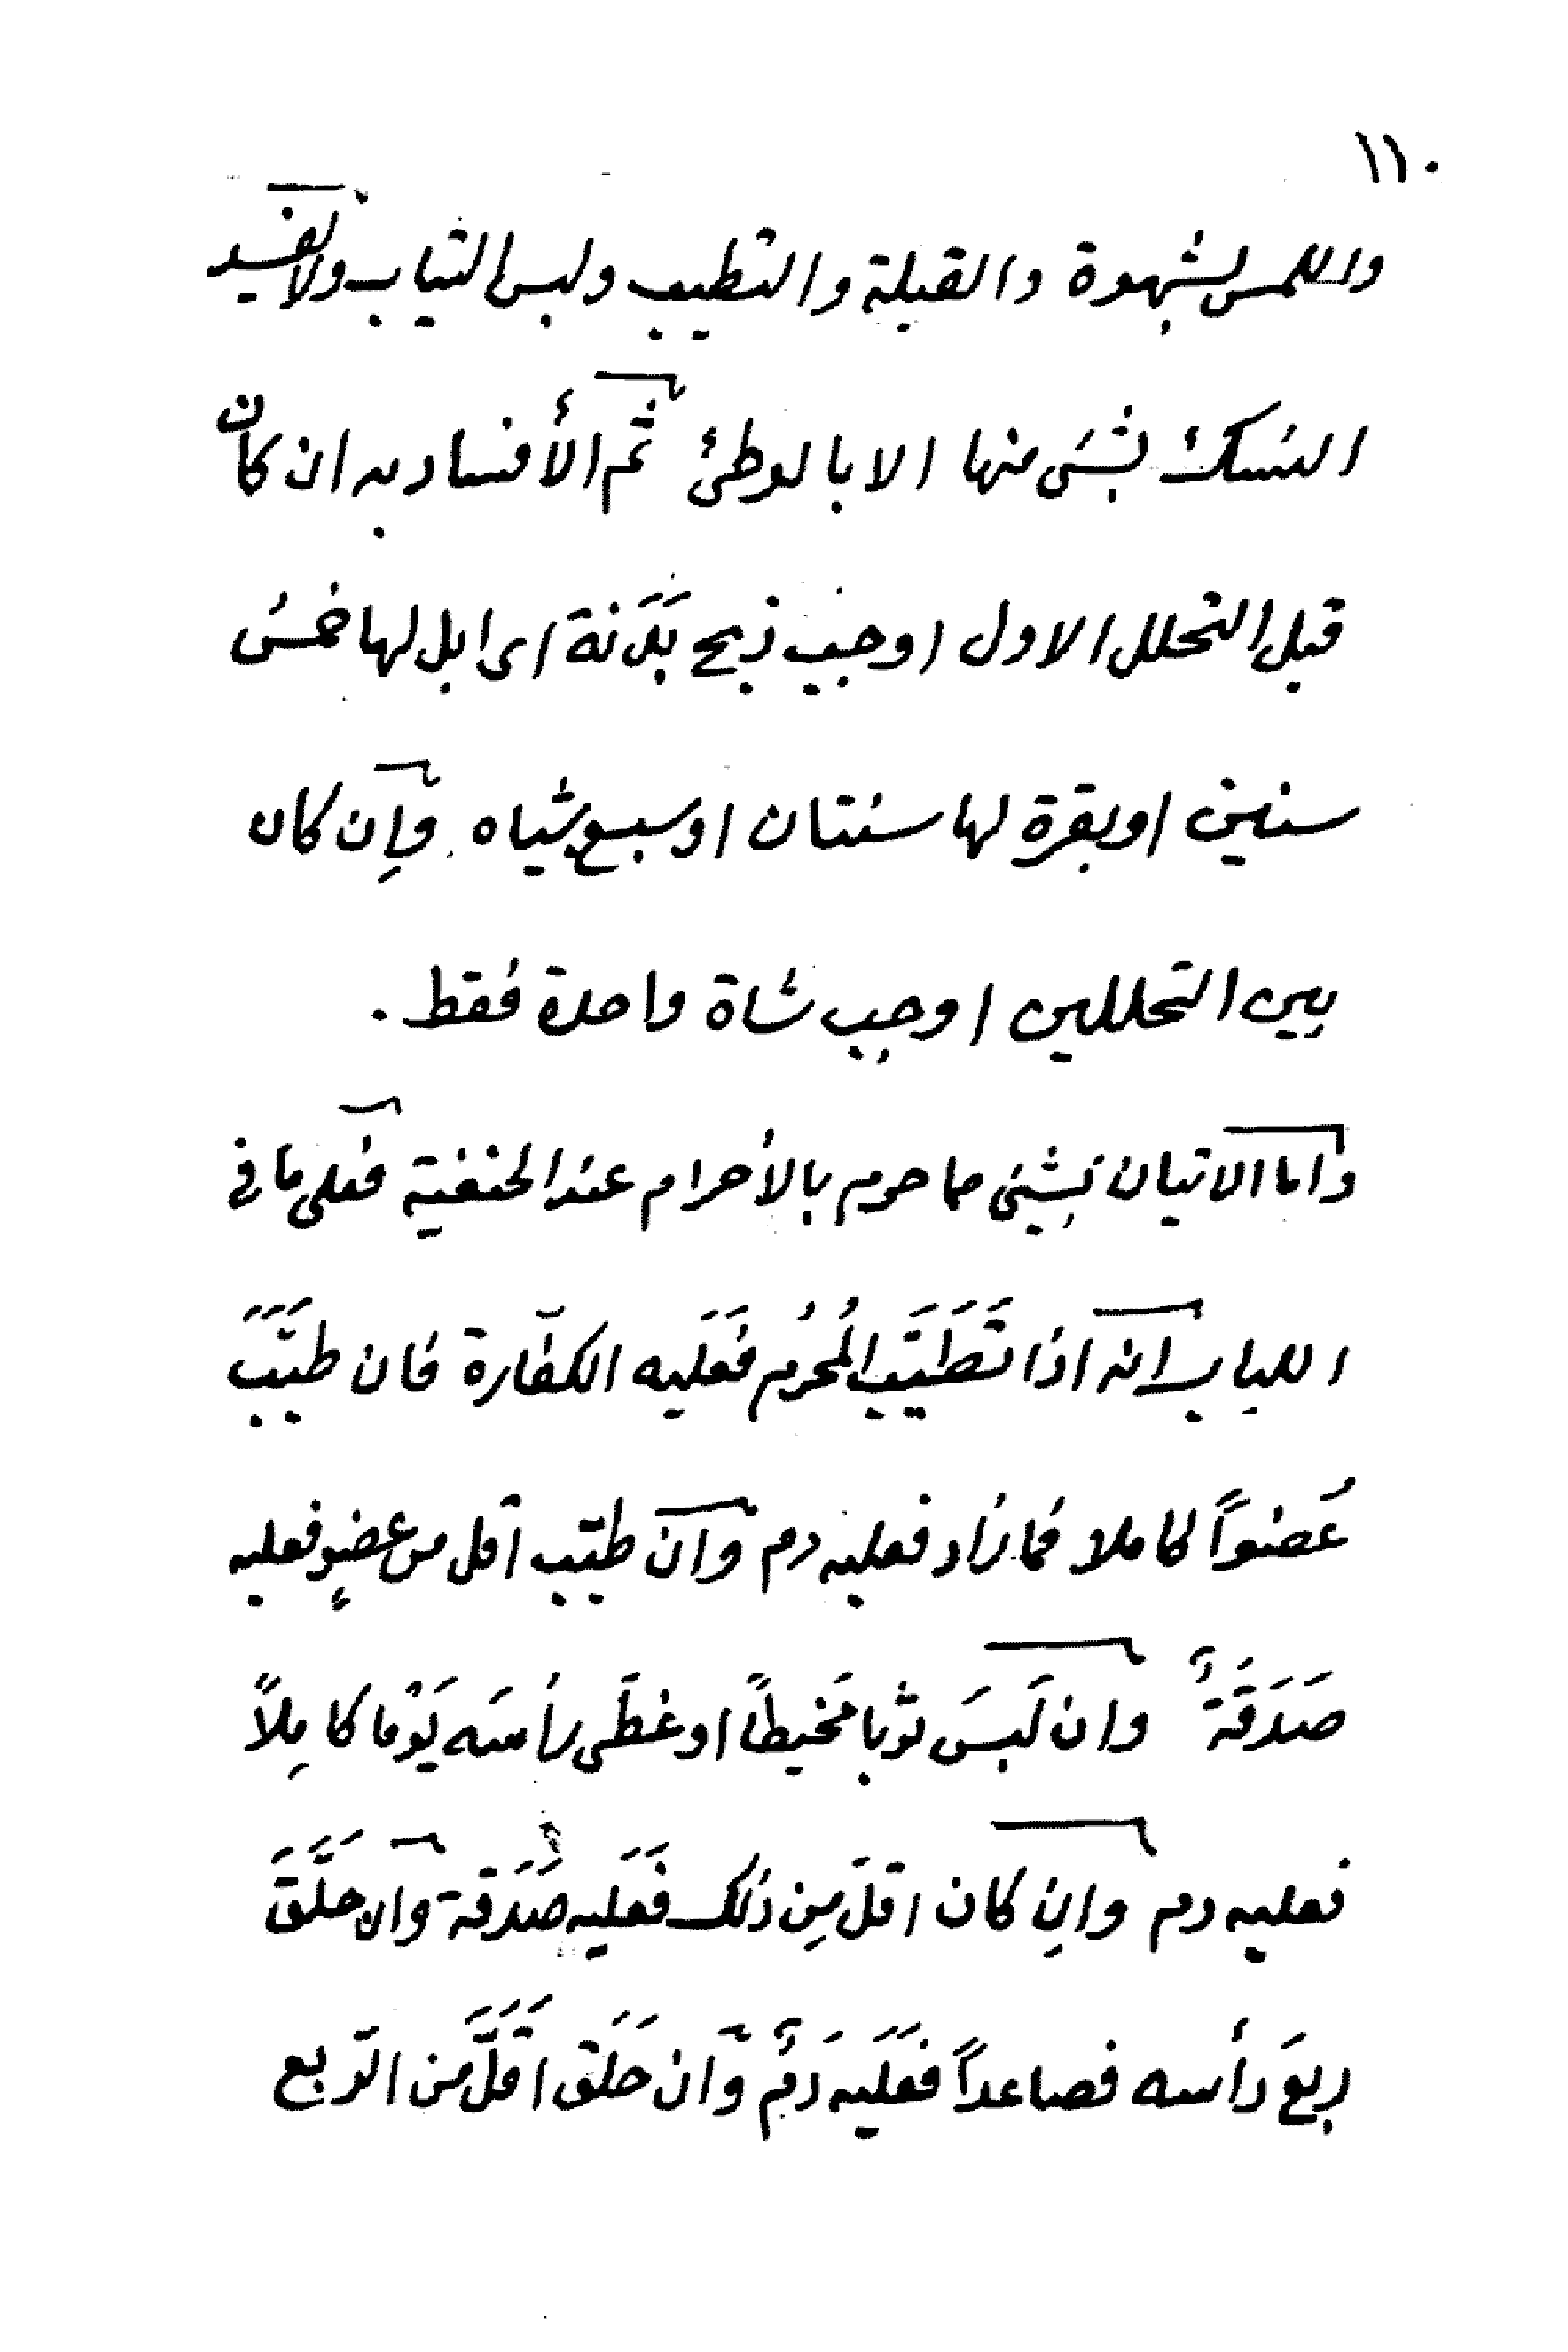 ١١٠
واللمس لشهوة والقبلة والتطيب ولبس الثياب ولا يفسد
النسك بشئ منها الا بالوطئ ثم الأفساد به ان كان
قبل التحلل الاول اوجب ذبح بَدَنة اى ابل لها خمس
سنين او بقرة لها سنتان او سبع شياه وإن كان
بين التحللين اوجب شاة واحدة فقط .
واما الاتيان بشيئ مما حرم بالأحرام عند الحنفية فعلى ما فى
اللباب انه اذا تَطَيَّبَ المُحرُم فَعَليه الكفّارة فان طيَّبَ
عُضواً كاملا فما زاد فعليه دم وان طيّب اقل من عضوٍ فعليه
صَدَقَةٌ وان لَبسَ ثوْبا مَخيطاً او غطَى رأسَه يَوْما كامِلاً
فعليه دم وان كان اقلَ مِن ذلك فَعَليه صَدَقة وان حَلَّقَ
ربعَ رأسه فصاعداً فَعَلَيه دَمٌ وان حَلَق اقَلَّ من الرّبع